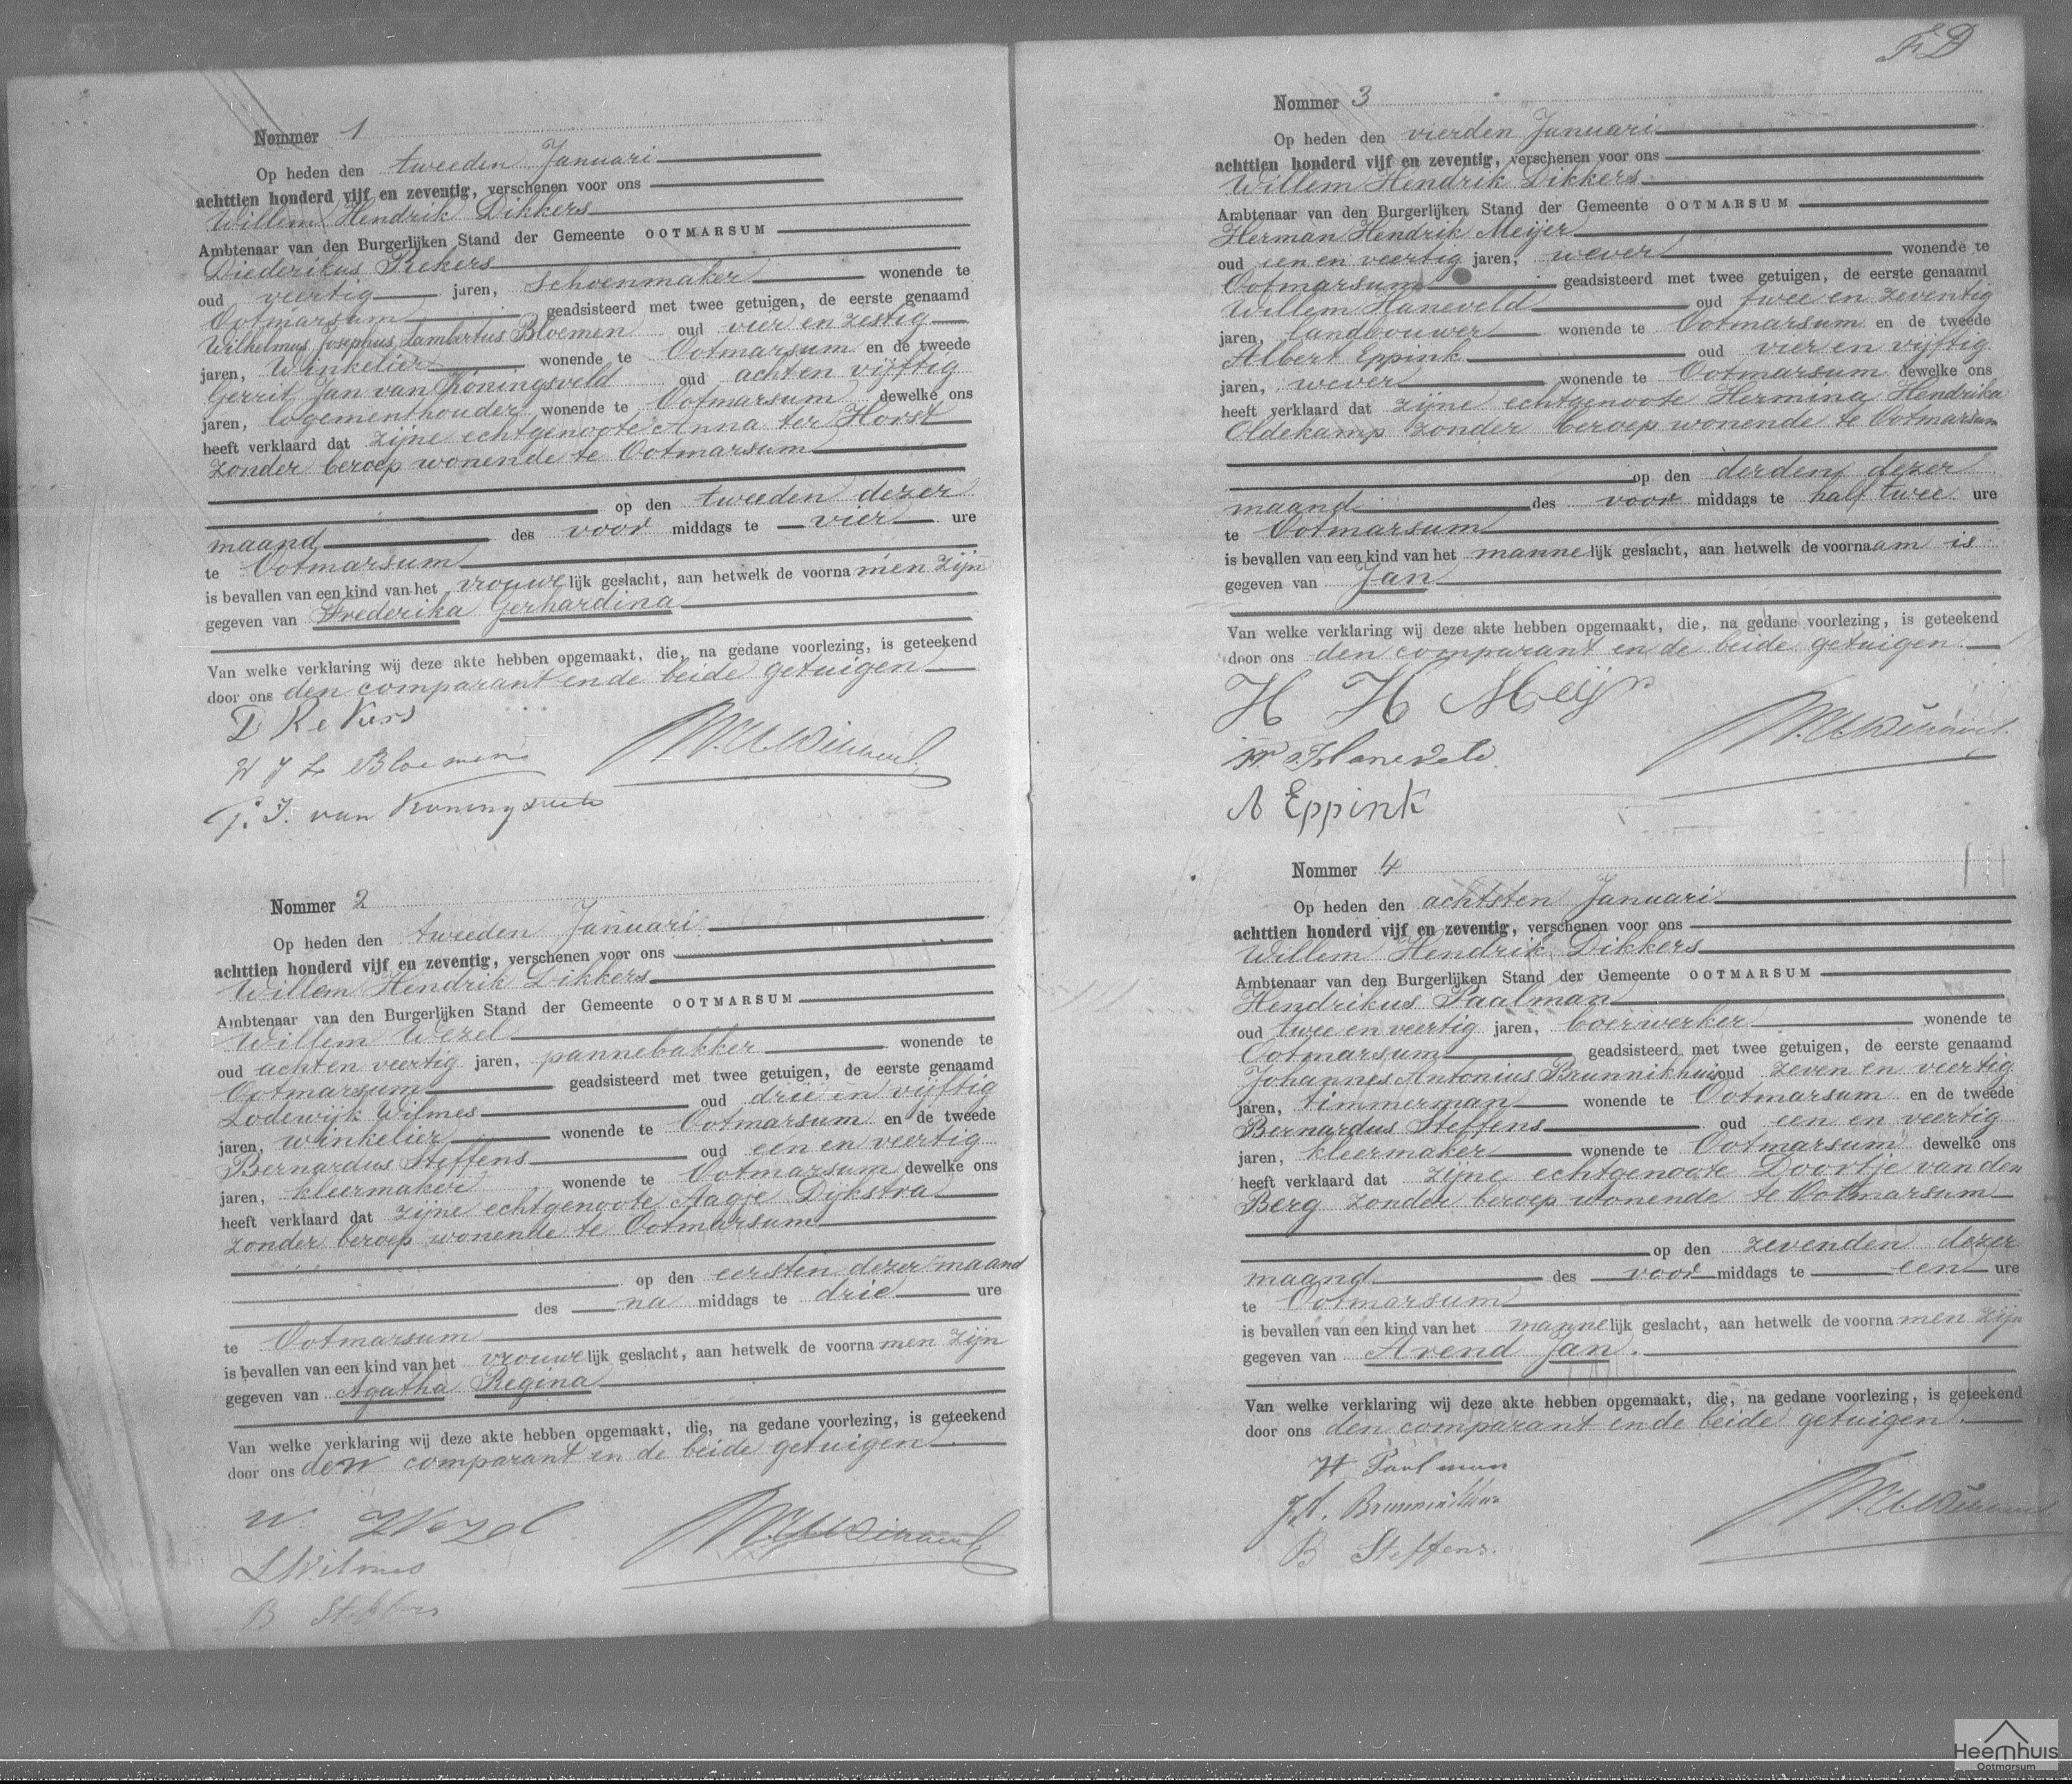 Nommer 1
Op heden den tweeden Januari
achttien honderd vijf en zeventig, verschenen voor ons
Willem Hendrik Dikkers
Ambtenaar van den Burgerlijken Stand der Gemeente OOTMARSUM
Diederikus Rekers
oud veertig jaren, schoenmaker wonende te
Ootmarsum geadsisteerd met twee getuigen, de eerste genaamd
Wilhelmus Josephus Lambertus Bloemen oud vier en zestig
jaren, Winkelier wonende te Ootmarsum en de tweede
Gerrit Jan van Koningsveld oud acht en vijftig
jaren, logementhouder wonende te Ootmarsum dewelke ons
heeft verklaard dat zijne echtgenoote Anna ter Horst
zonder beroep wonende te Ootmarsum
op den tweeden dezer
maand des voor middags te vier ure
te Ootmarsum
is bevallen van een kind van het vrouwelijk geslacht, aan hetwelk de voornamen zijn
gegeven van Frederika Gerhardina
Van welke verklaring wij deze akte hebben opgemaakt, die, na gedane voorlezing, is geteekend
door ons den comparant en de beide getuigen
D Rekers
W J L Bloemen
G. J. van Koningsveld
Nommer 2
Op heden den tweeden Januari
achttien honderd vijf en zeventig, verschenen voor ons
Willem Hendrik Dikkers
Ambtenaar van den Burgerlijken Stand der Gemeente OOTMARSUM
Willem Wezel
oud acht en veertig jaren, pannebakker wonende te
Ootmarsum geadsisteerd met twee getuigen, de eerste genaamd
Lodewijk Wilmes oud drie en vijftig
jaren, winkelier wonende te Ootmarsum en de tweede
Bernardus Steffens oud een en veertig
jaren, kleermaker wonende te Ootmarsum dewelke ons
heeft verklaard dat zijne echtgenoote Aagje Dijkstra
zonder beroep wonende te Ootmarsum
op den eersten dezer maand
des na middags te drie ure
te Ootmarsum
is bevallen van een kind van het vrouwelijk geslacht, aan hetwelk de voornamen zijn
gegeven van Agatha Regina
Van welke verklaring wij deze akte hebben opgemaakt, die, na gedane voorlezing, is geteekend
door ons den comparant en de beide getuigen
W Wezel
L Wilmes
B Steffens
FD
Nommer 3
Op heden den vierden Januari
achttien honderd vijf en zeventig, verschenen voor ons
Willem Hendrik Dikkers
Ambtenaar van den Burgerlijken Stand der Gemeente OOTMARSUM
Herman Hendrik Meijer
oud een en veertig jaren, wever wonende te
Ootmarsum geadsisteerd met twee getuigen, de eerste genaamd
Willem Haneveld oud twee en zeventig
jaren, landbouwer wonende te Ootmarsum en de tweede
Albert Eppink oud vier en vijftig
jaren, wever wonende te Ootmarsum dewelke ons
heeft verklaard dat zijne echtgenoote Hermina Hendrika
Oldekamp zonder beroep wonende te Ootmarsum
op den derden dezer
maand des voor middags te half twee ure
te Ootmarsum
is bevallen van een kind van het mannelijk geslacht, aan hetwelk de voornaam is
gegeven van Jan
Van welke verklaring wij deze akte hebben opgemaakt, die, na gedane voorlezing, is geteekend
door ons den comparant en de beide getuigen.
H H Meijr
W Haneveld
A Eppink
Nommer 4
Op heden den achtsten Januari
achttien honderd vijf en zeventig, verschenen voor ons
Willem Hendrik Dikkers
Ambtenaar van den Burgerlijken Stand der Gemeente OOTMARSUM
Hendrikus Paalman
oud twee en veertig jaren, boerwerker wonende te
Ootmarsum geadsisteerd met twee getuigen, de eerste genaamd
Johannes Antonius Brunnikhuis oud zeven en veertig
jaren, timmerman wonende te Ootmarsum en de tweede
Bernardus Steffens oud een en veertig
jaren, kleermaker wonende te Ootmarsum dewelke ons
heeft verklaard dat zijne echtgenoote Doortje van den
Berg zonder beroep wonende te Ootmarsum
op den zevenden dezer
maand des voor middags te een ure
te Ootmarsum
is bevallen van een kind van het mannelijk geslacht, aan hetwelk de voornamen zijn
gegeven van Arend Jan.
Van welke verklaring wij deze akte hebben opgemaakt, die, na gedane voorlezing, is geteekend
door ons den comparant en de beide getuigen.
H Paalman
J.A. Brunninkhuis
B Steffens.
Heemhuis
Ootmarsum